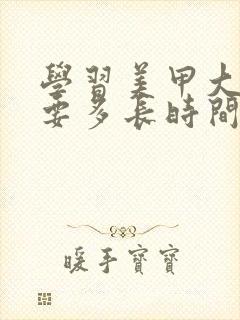 學習美甲大
要多長時間
暖手寶寶